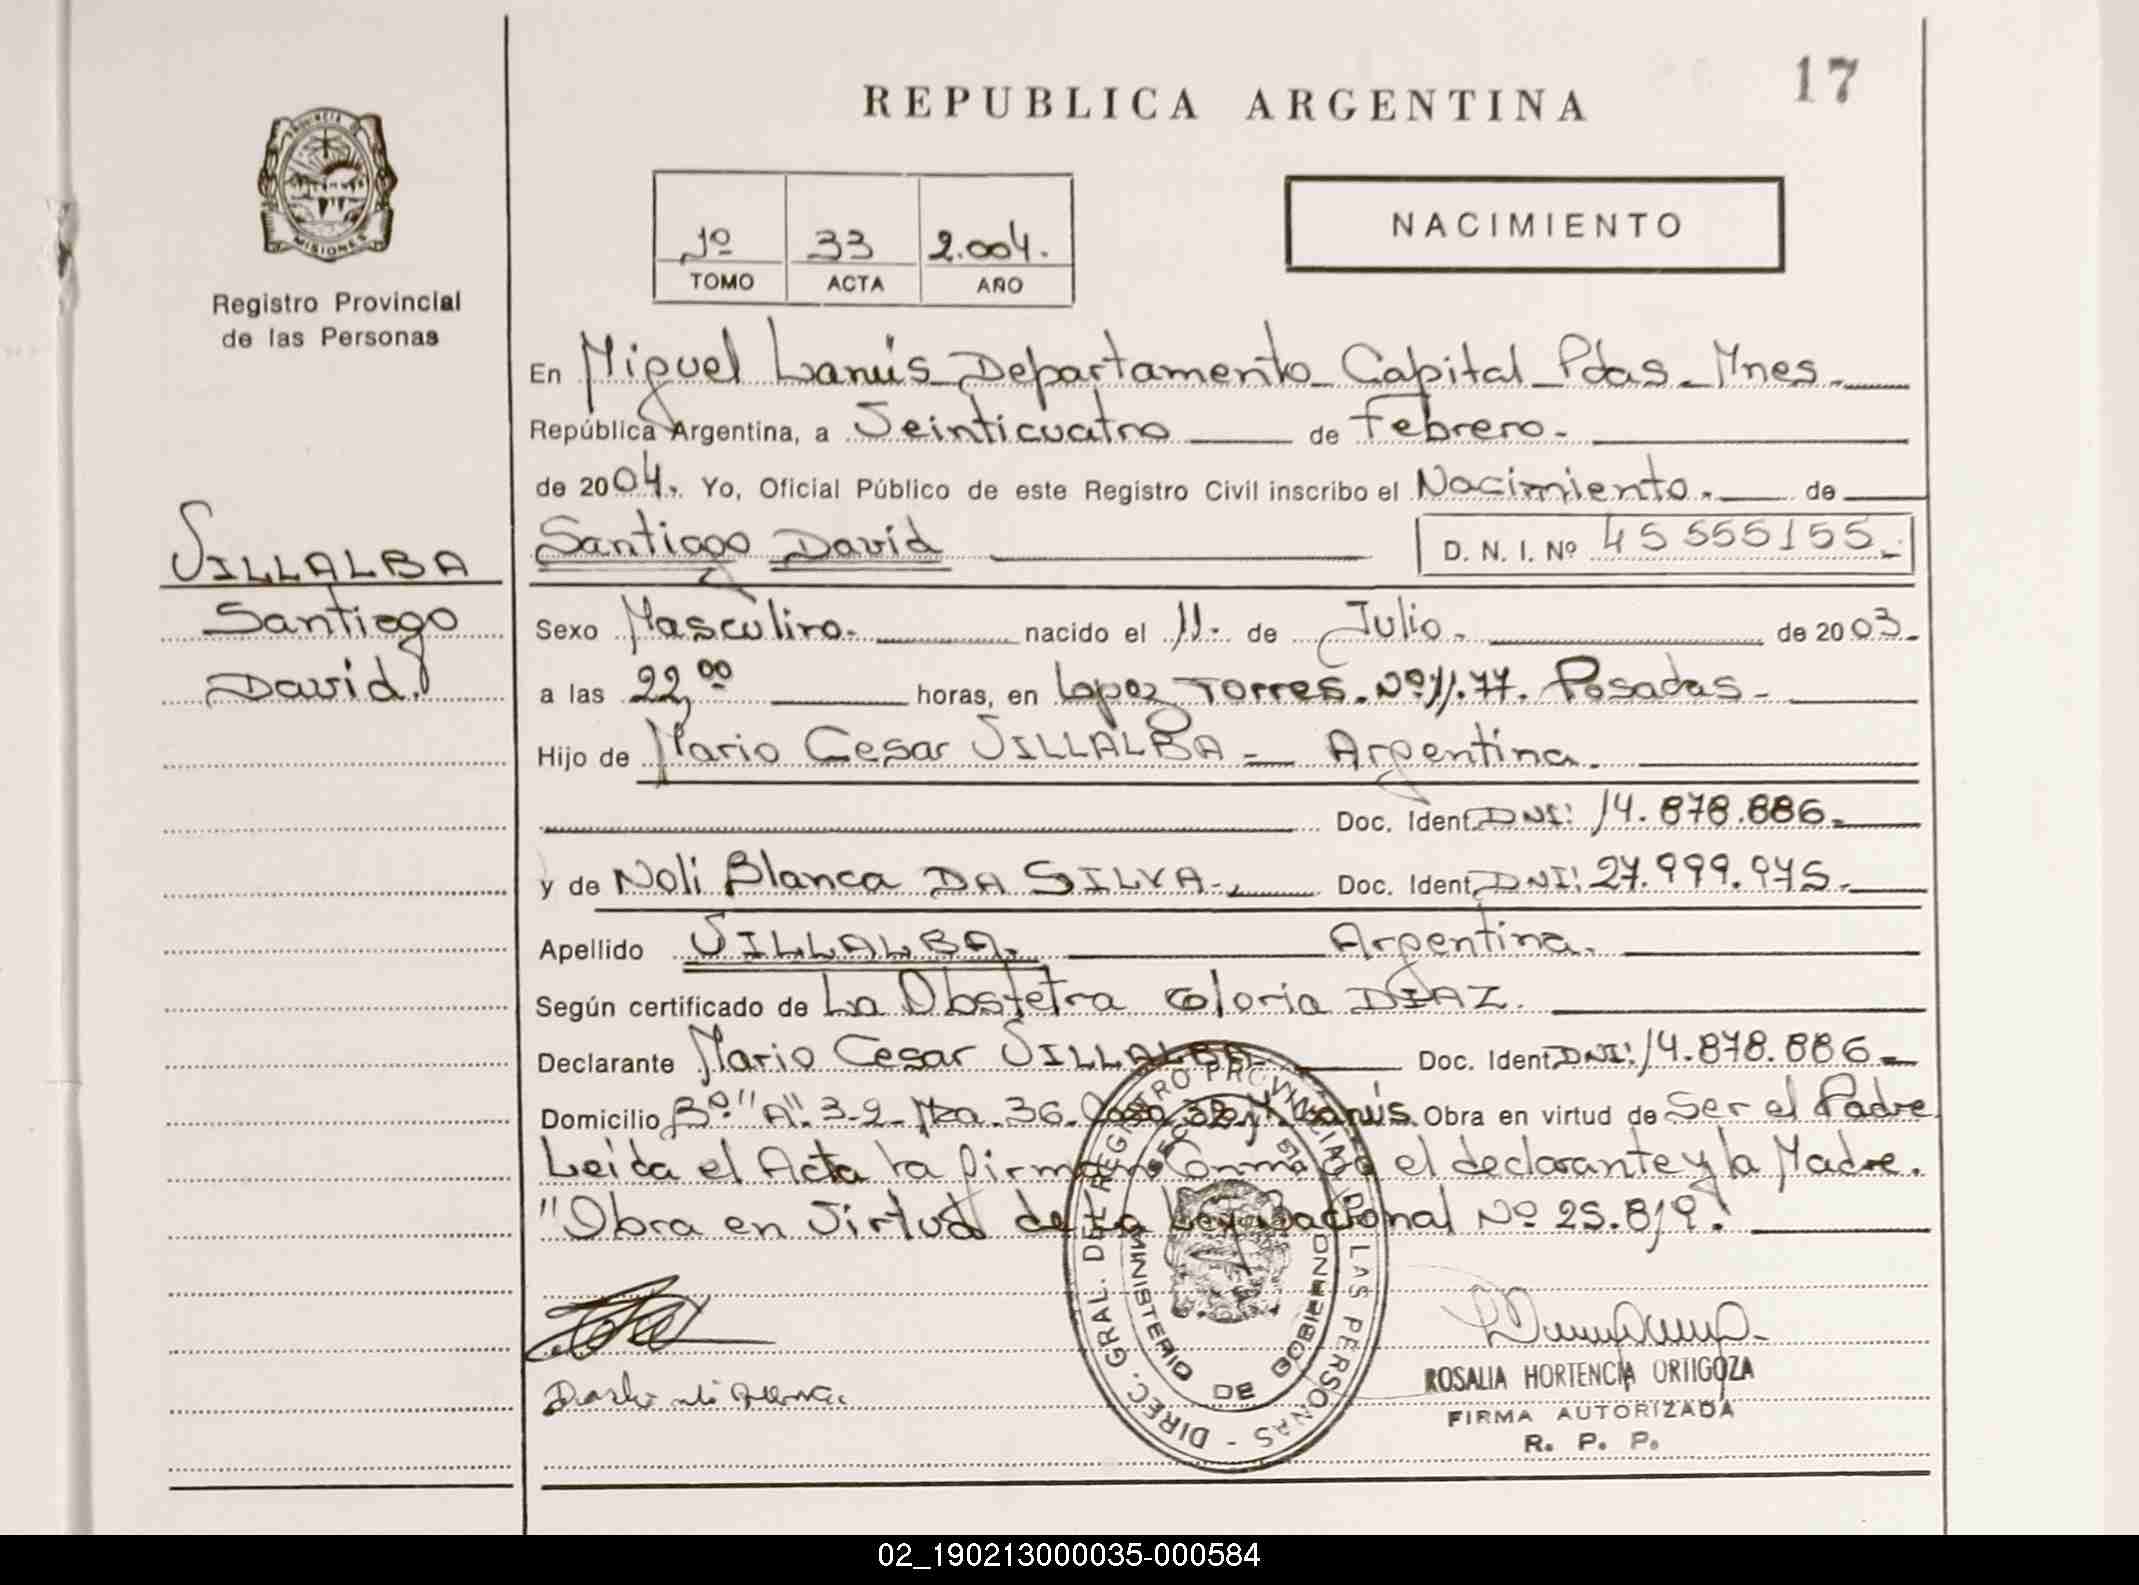 REPUBLICA ARGENTINA
17
PROVINCIA DE
MISIONES
Registro Provincial
de las Personas
1º 33 2.004.
TOMO ACTA AÑO
NACIMIENTO
VILLALBA
Santiago
David
En Miguel Lanús - Departamento - Capital - Pdas - Mnes.
República Argentina, a Veinticuatro de Febrero.
de 2004. Yo, Oficial Público de este Registro Civil inscribo el Nacimiento. de
Santiago David D. N. I. Nº 45555155.
Sexo Masculino. nacido el 11. de Julio. de 2003.
a las 22,00 horas, en Lopez Torres. Nº 11.77. Posadas-
Hijo de Mario Cesar VILLALBA - Argentina.
Doc. Ident. DNI: 14.878.886.
y de Noli Blanca DA SILVA. Doc. Ident. DNI: 27.999.975.
Apellido VILLALBA. Argentina.
Según certificado de La Obstetra Gloria DIAZ.
Declarante Mario Cesar VILLALBA. Doc. Ident. DNI: 14.878.886.
Domicilio Bº "A". 3-2- Mza. 36. Lanús. Obra en virtud de Ser el Padre
Leida el Acta la firman Conmigo el declarante y la Madre.
"Obra en Virtud de La Ley Nacional Nº 25.819".
DIREC. GRAL. DEL REGISTRO PROVINCIAL DE LAS PERSONAS -
MINISTERIO DE GOBIERNO
ROSALIA HORTENCIA ORTIGOZA
FIRMA AUTORIZADA
R. P. P.
02_190213000035-000584